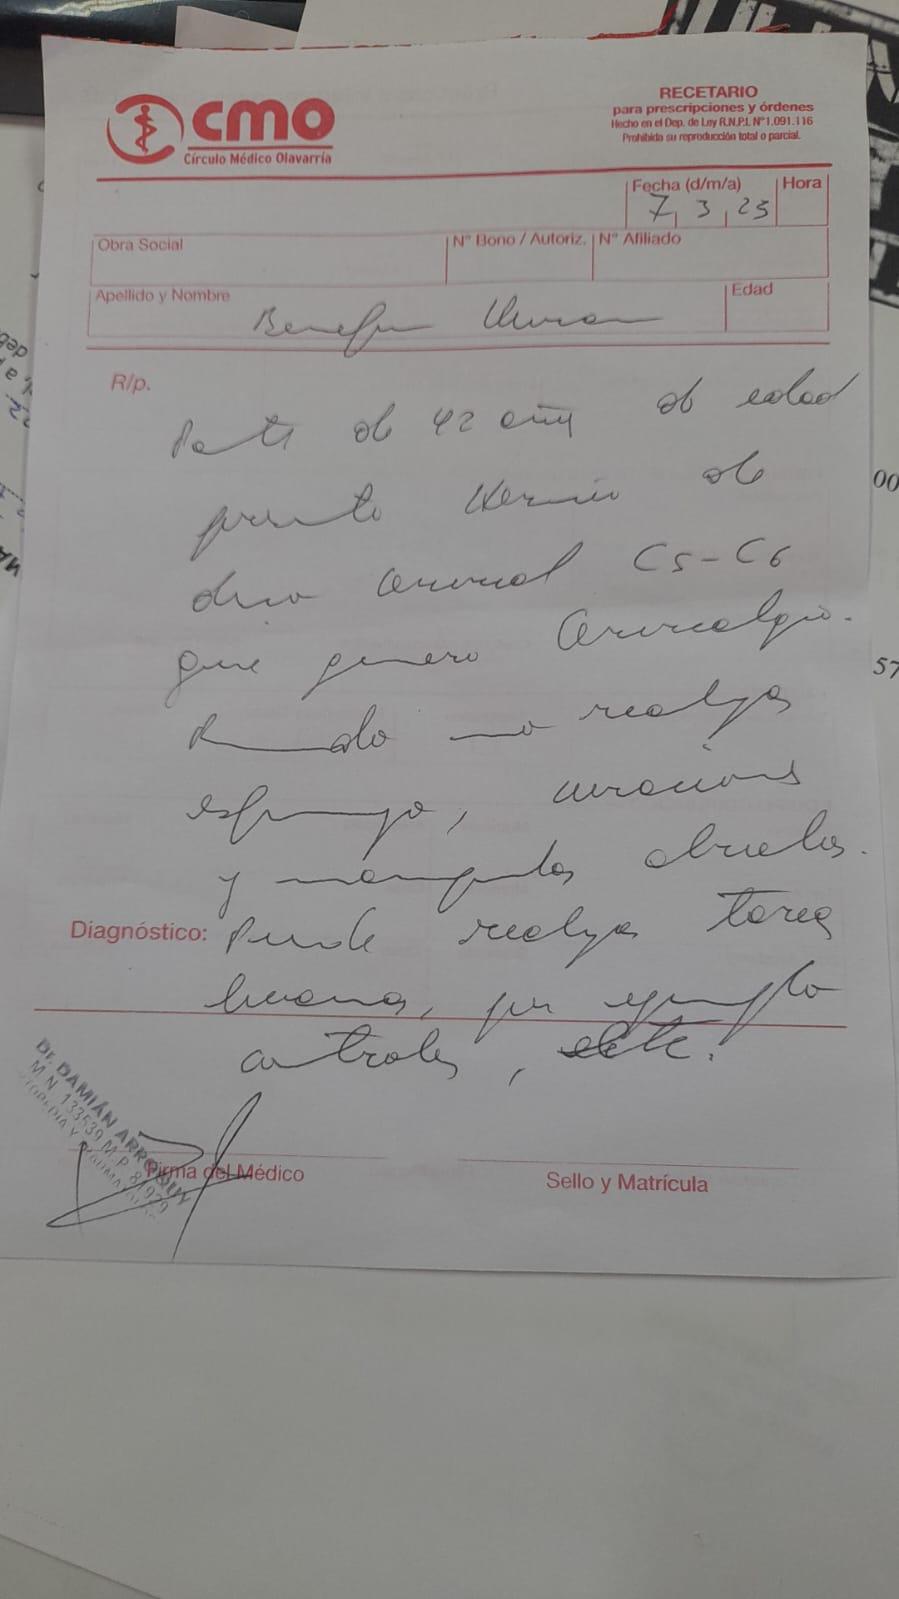 cmo
Círculo Médico Olavarría
RECETARIO
para prescripciones y órdenes
Hecho en el Dep. de Ley R.N.P.I. N°1.091.116
Prohibida su reproducción total o parcial.
Fecha (d/m/a)
Hora
7 3 23
Obra Social
N° Bono / Autoriz.
N° Afiliado
Apellido y Nombre
Edad
R/p.
de 42 años de edad
presenta Hernia de
disco cervical C5-C6
que genera Cervicalgia.
no realizar
esfuerzo, curaciones
y abuelos.
Diagnóstico: Puede realizar tareas
livianas, por ejemplo
controles, etc.
Dr. DAMIÁN
M.N. 133539 M.P.
Firma del Médico
Sello y Matrícula
00
57